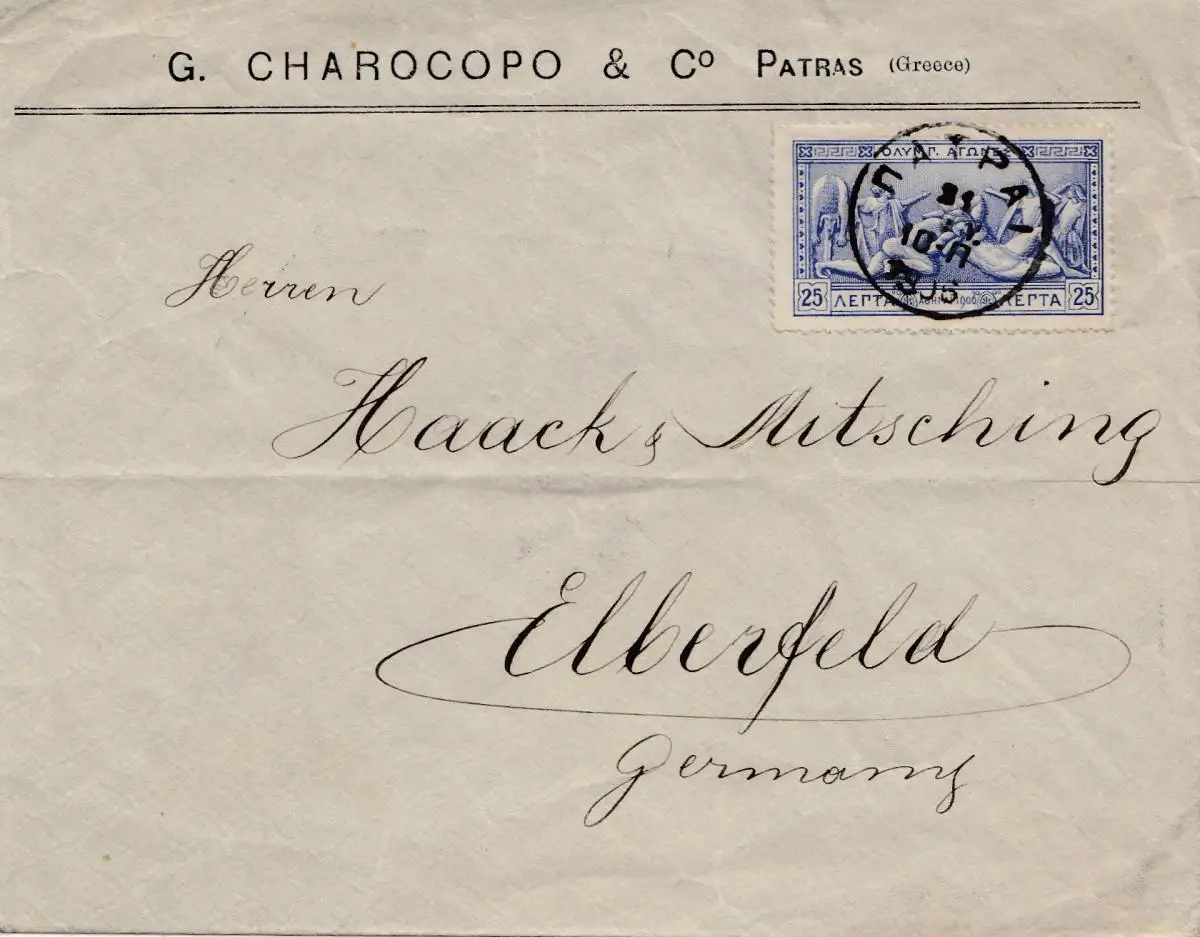 G. CHAROCOPO & Cº PATRAS (Greece)
ΟΛΥΜΠ. ΑΓΩΝΕΣ
25 ΛΕΠΤΑ ΑΘΗΝΑΙ 1906 ΛΕΠΤΑ 25
ΠΑΤΡΑΙ
Herren
Haack & Mitsching
Elberfeld
Germany